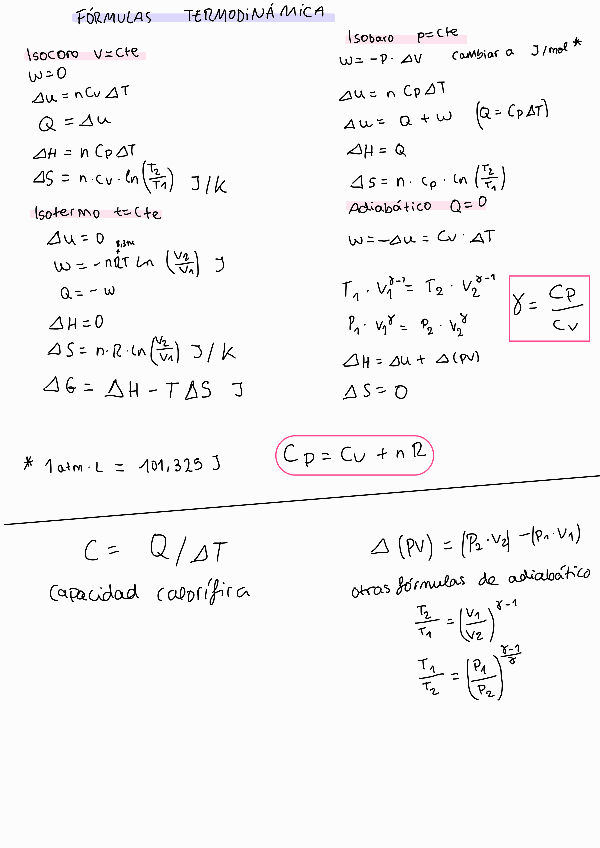 FÓRMULAS TERMODINÁMICA
Isocoro V=cte
W=0
Δu = n Cv ΔT
Q = Δu
ΔH = n Cp ΔT
ΔS = n·Cv·ln(T2/T1) J/K
Isotermo t=cte
Δu = 0
W = -nRT ln (V2/V1) J
Q = -W
ΔH = 0
ΔS = n·R·ln(V2/V1) J/K
ΔG = ΔH - TΔS J
* 1 atm·L = 101,325 J
Isobaro p=cte
W = -P·ΔV cambiar a J/mol *
Δu = n Cp ΔT
Δu = Q + W (Q = Cp ΔT)
ΔH = Q
ΔS = n·Cp·ln(T2/T1)
Adiabático Q=0
W = -Δu = Cv·ΔT
T1·V1^γ-1 = T2·V2^γ-1
P1·V1^γ = P2·V2^γ
γ = Cp/Cv
ΔH = Δu + Δ(PV)
ΔS = 0
Cp = Cv + nR
C = Q/ΔT
Capacidad calorífira
Δ(PV) = (P2·V2) - (P1·V1)
otras fórmulas de adiabático
T2/T1 = (V1/V2)^γ-1
T1/T2 = (P1/P2)^γ-1/γ